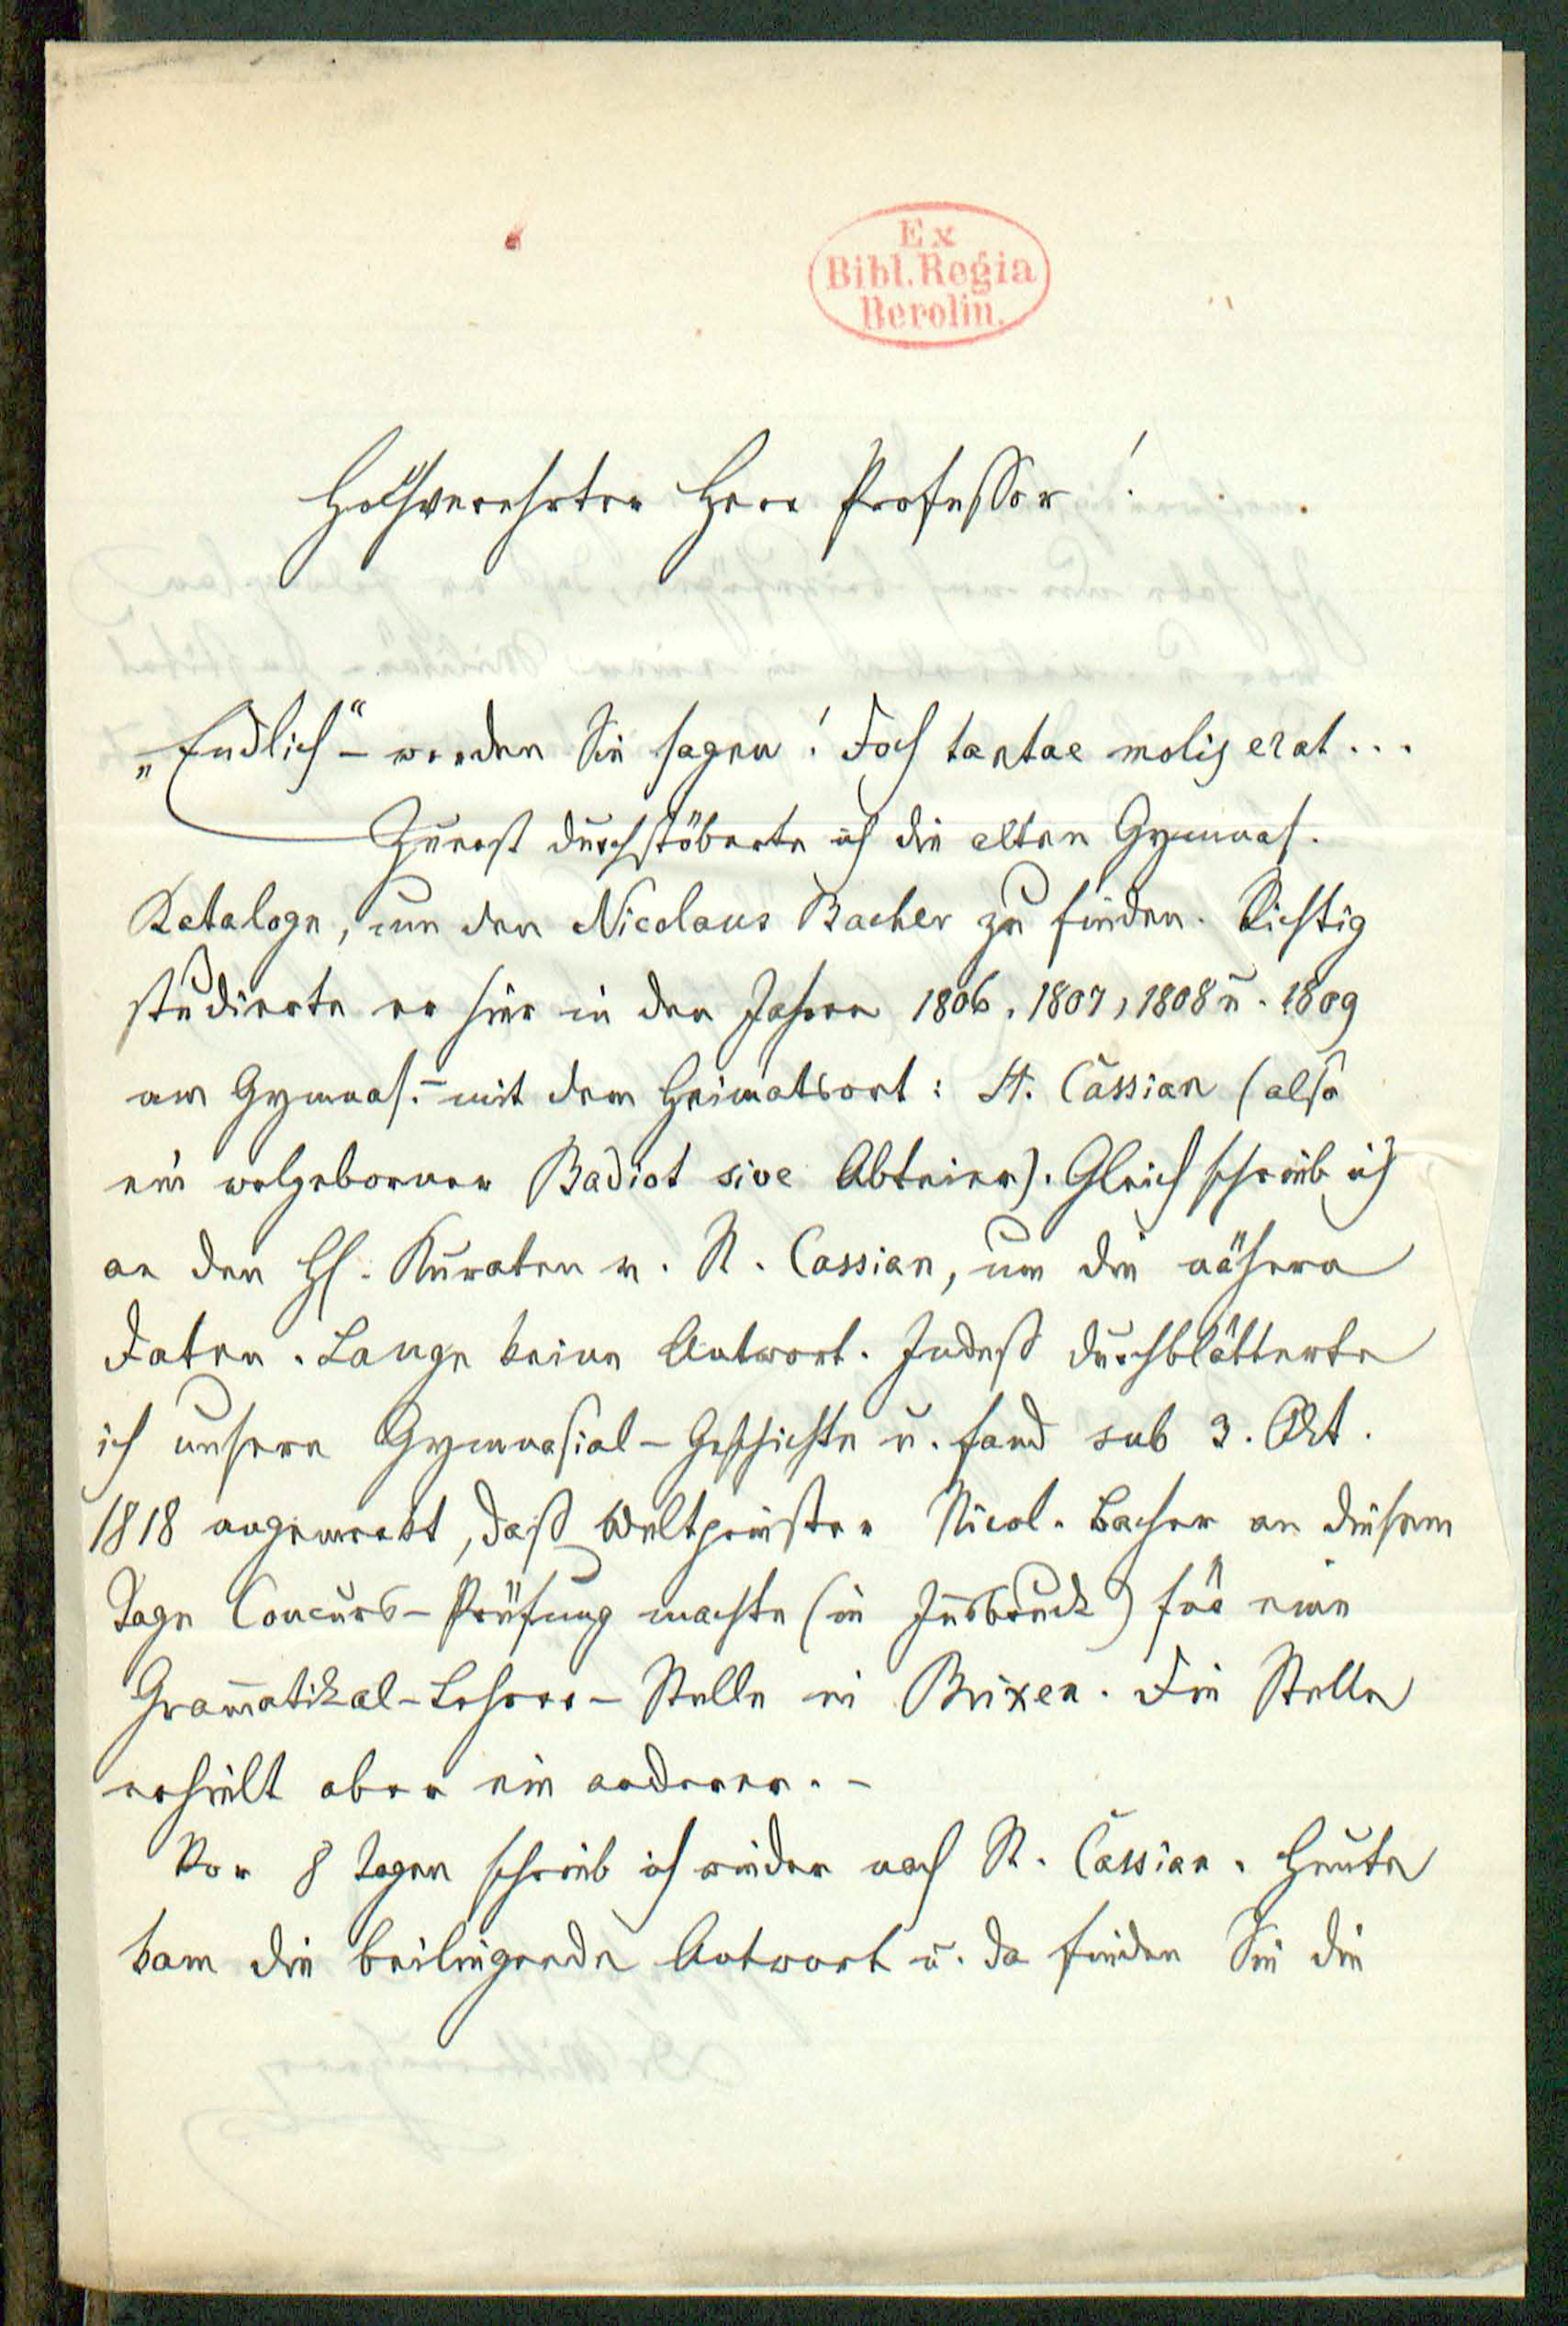 Ex
Bibl. Regia
Berolin.
Hochverehrter Herr Professor!
„Endlich“ – werden Sie sagen! Doch tantae molis erat...
Zuerst durchstöberte ich die alten Gymnas.
Kataloge, um den Nicolaus Bacher zu finden. Richtig
studierte er hier in den Jahren 1806, 1807, 1808 u. 1809
am Gymnas. – mit dem Heimatsort: St. Cassian (also
ein wolgeborner Badiot sive Abteier). Gleich schrieb ich
an den H. Kuraten v. St. Cassian, um die nähern
Daten. Lange keine Antwort. Indeß durchblätterte
ich unsere Gymnasial-Geschichte u. fand sub 3. Okt.
1818 angemerkt, daß Weltpriester Nicol. Bacher an diesem
Tage Concurs-Prüfung machte (in Insbruck) für eine
Gram̄atikal-Lehrer-Stelle in Brixen. Die Stelle
erhielt aber ein anderer. –
Vor 8 Tagen schrieb ich wieder nach St. Cassian. Heute
kam die beiliegende Antwort u. da finden Sie die